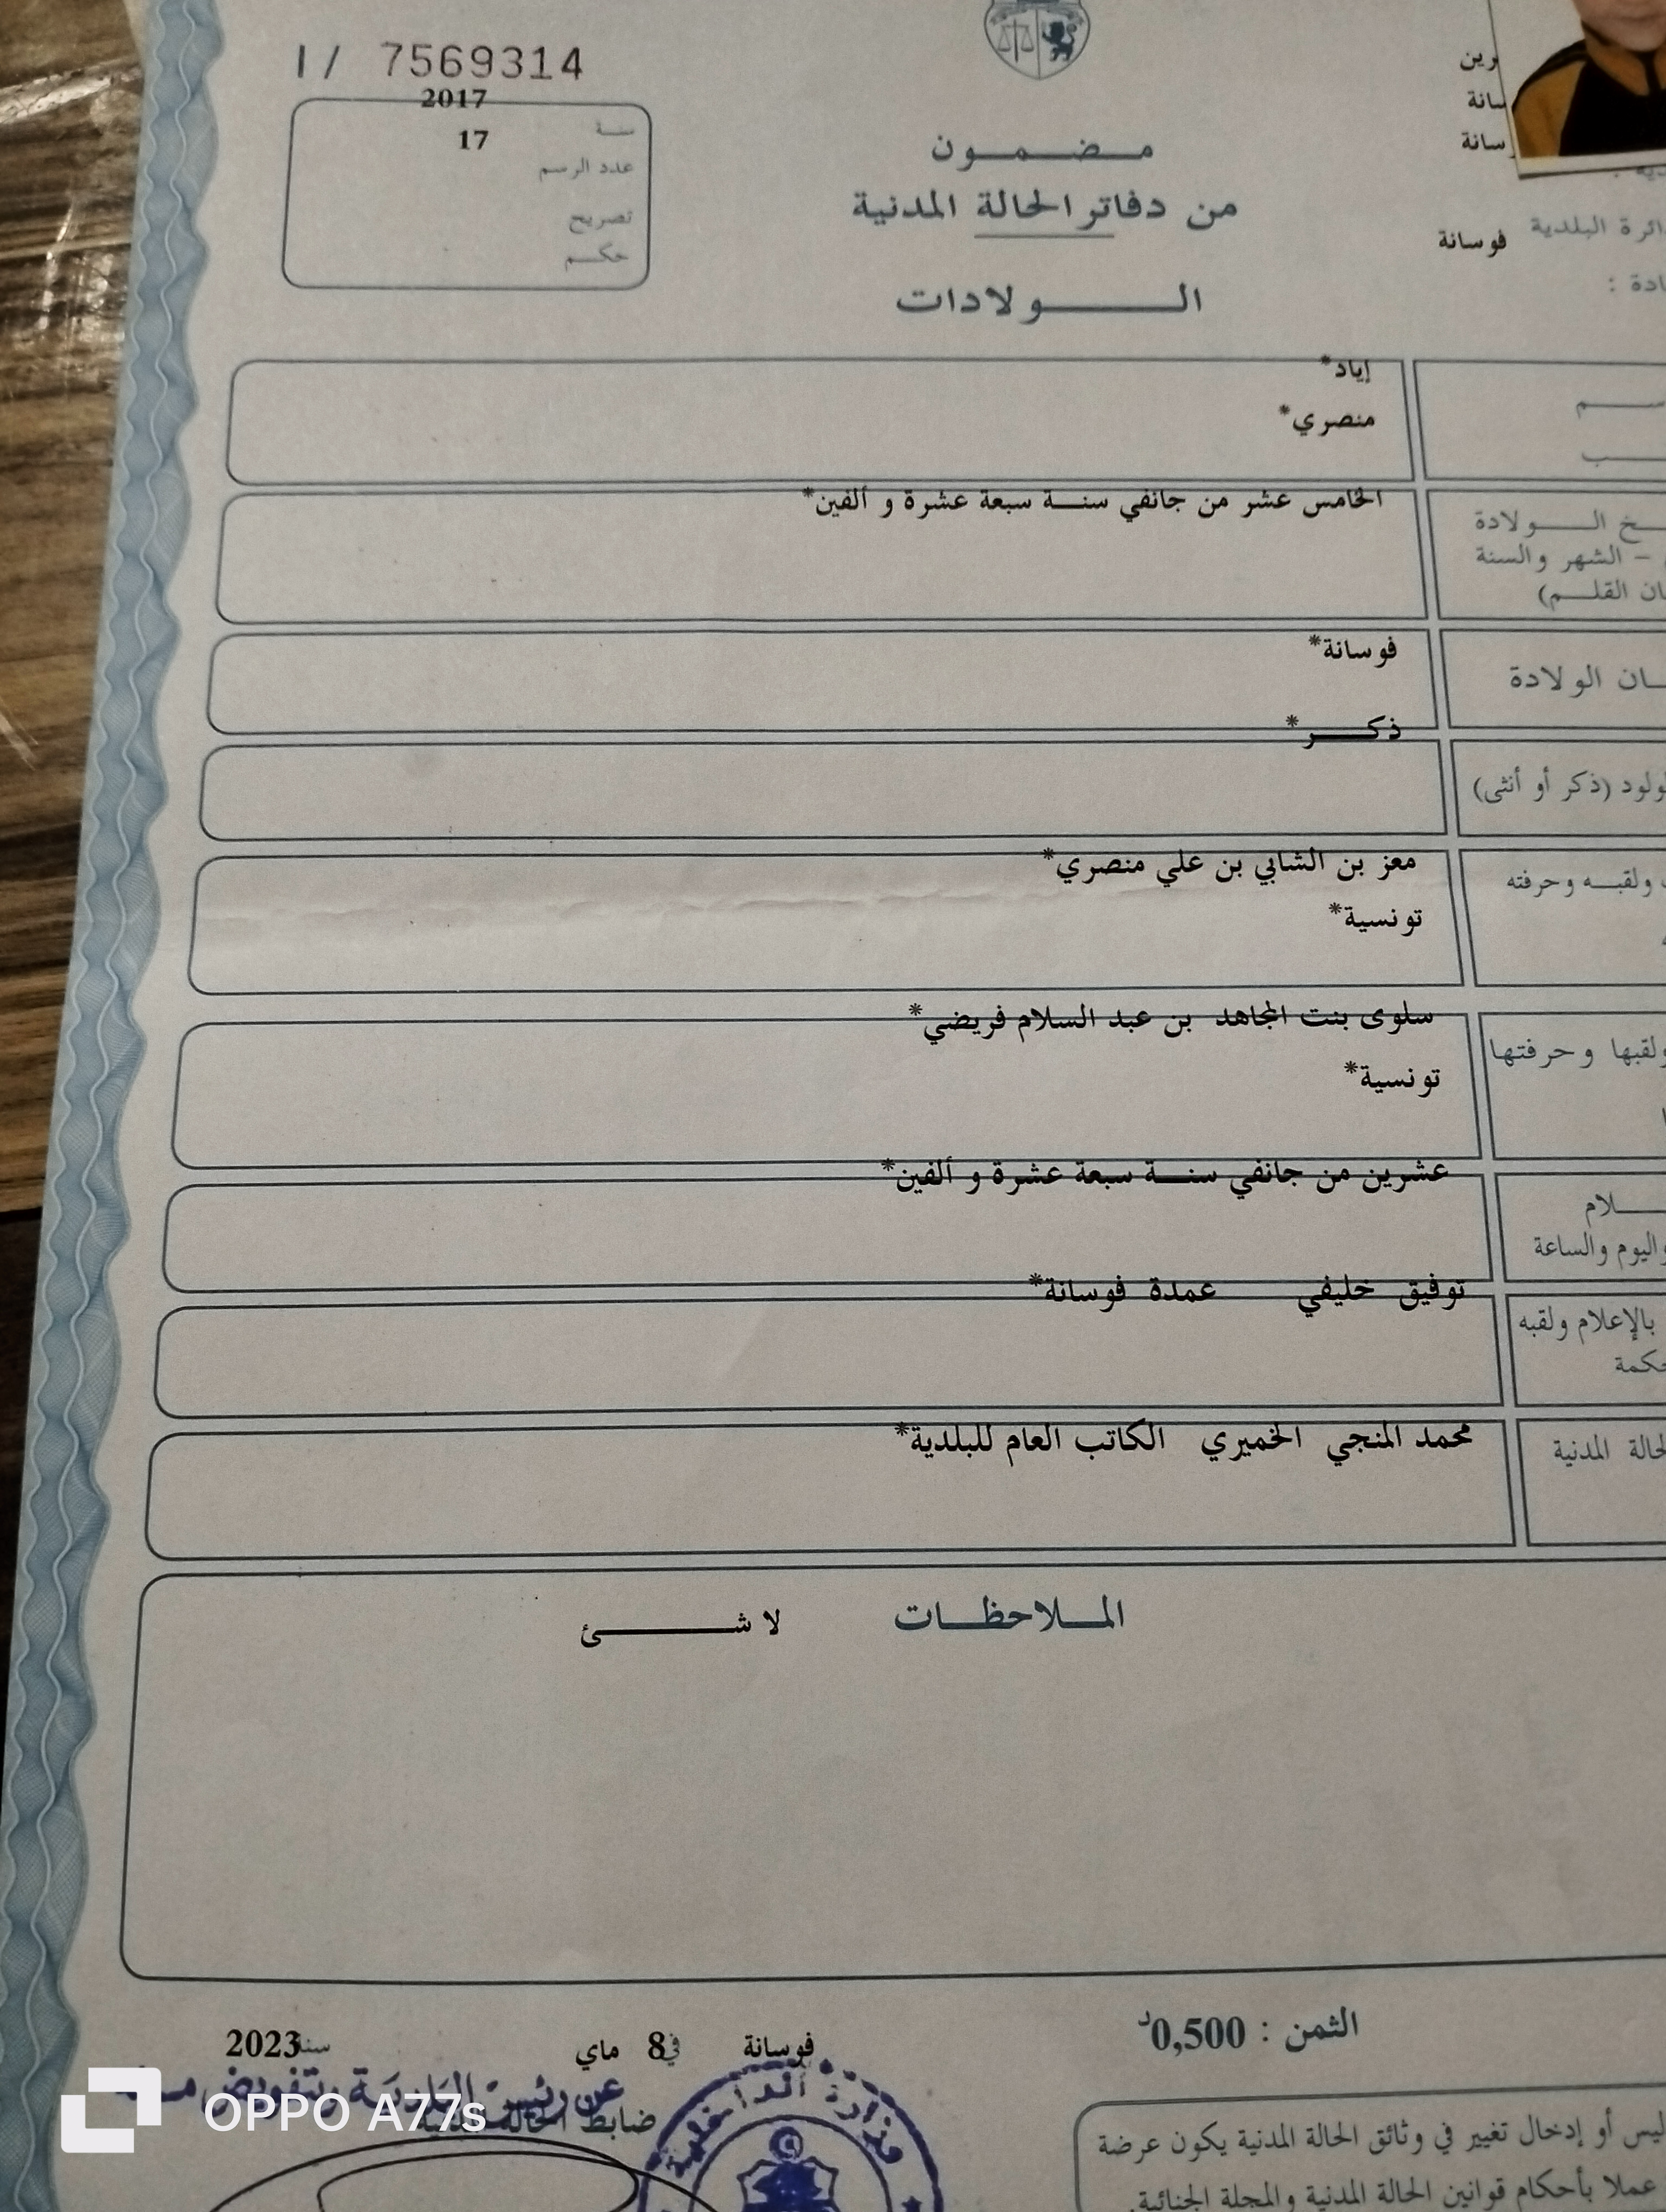 I / 7569314
2017
سنة
17
عدد الرسم
تصريح
حكم
مضمون
من دفاتر الحالة المدنية
الولادات
فوسانة
إياد*
منصري*
الخامس عشر من جانفي سنة سبعة عشرة و ألفين*
الولادة
– الشهر والسنة
القلم)
فوسانة*
الولادة
ذكر*
(ذكر أو أنثى)
معز بن الشابي بن علي منصري*
ولقبه وحرفته
تونسية*
سلوى بنت المجاهد بن عبد السلام فريضي*
ولقبها وحرفتها
تونسية*
عشرين من جانفي سنة سبعة عشرة و ألفين*
واليوم والساعة
توفيق خليفي عمدة فوسانة*
بالإعلام ولقبه
محمد المنجي الخميري الكاتب العام للبلدية*
المدنية
الملاحظات لا شئ
الثمن : 0,500د
فوسانة في 8 ماي سنة 2023
عن رئيس البلدية وبتفويض منه
ضابط الحالة المدنية
وزارة الداخلية
أو إدخال تغيير في وثائق الحالة المدنية يكون عرضة
عملا بأحكام قوانين الحالة المدنية والمجلة الجنائية.
OPPO A77s